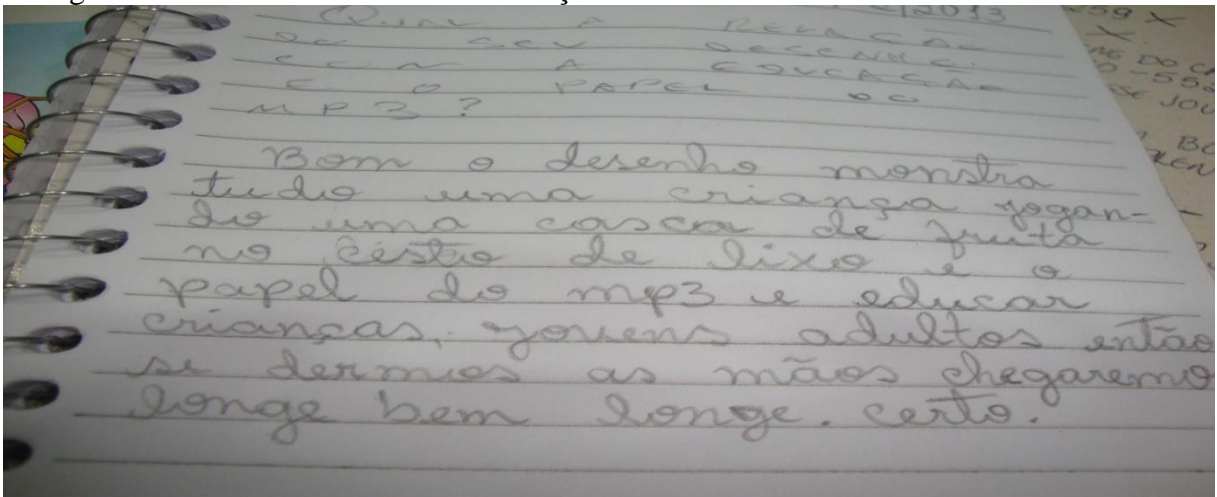 2013
QUAL A RELAÇÃO
DO SEU DESENHO
COM A EDUCAÇÃO
E O PAPEL DO
MP3?
Bom o desenho monstra
tudo uma criança jogan-
do uma casca de fruta
no cesto de lixo e o
papel do mp3 e educar
crianças, jovens adultos então
se dermos as mãos chegaremo
longe bem longe. certo.